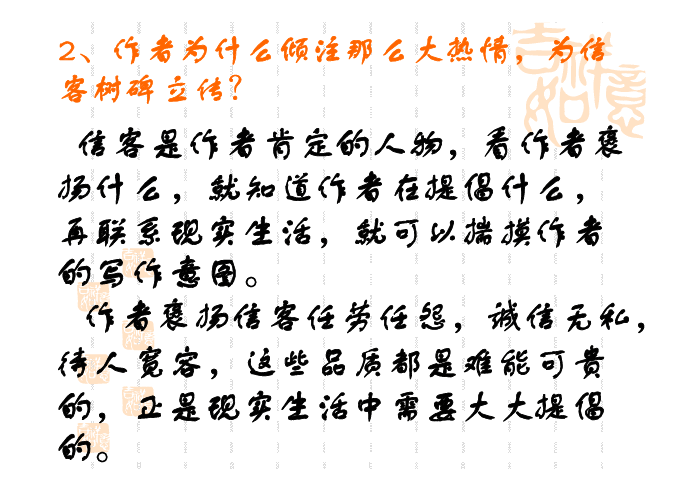 2、作者为什么倾注那么大热情，为信
客树碑立传？
信客是作者肯定的人物，看作者褒
扬什么，就知道作者在提倡什么，
再联系现实生活，就可以揣摸作者
的写作意图。
作者褒扬信客任劳任怨，诚信无私，
待人宽容，这些品质都是难能可贵
的，正是现实生活中需要大大提倡
的。
吉祥
如意